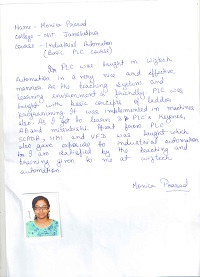 Name - Monica Prasad
College - NIT Jamshedpur
Course - Industrial Automation
(Basic PLC Course)
PLC was taught in wiztech
Automation in a very nice and effective
manner. As the teaching system and
learning environment is friendly PLC was
taught with basic concepts of ladder
programming. It was implemented in machines
also. As I got to learn 3 PLC's Keyence,
AB and mitsubishi. Apart from PLC
SCADA, HMI and VFD was taught which
also gave exposure to industrial automation.
I am satisfied by the teaching and
training given to me at wiztech
automation.
Monica Prasad